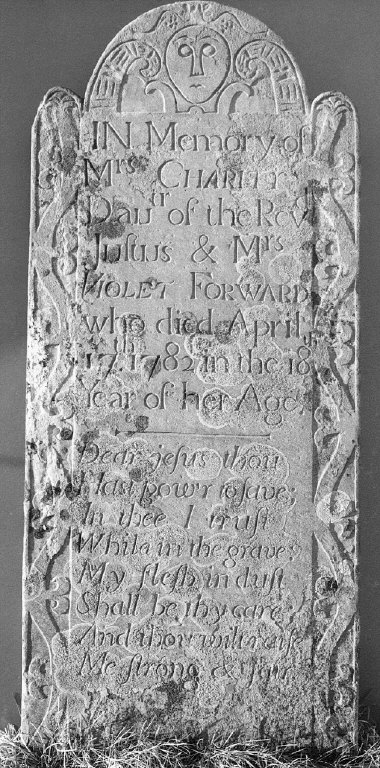 IN Memory of
Mrs CHARITY
Daur of the Revd
Justus & Mrs
VIOLET FORWARD
who died April
17.th 1782 in the 18th
Year of her Age,
Dear jesus thou
Hast pow'r to save;
In thee I trust
While in the grave;
My flesh in dust
Shall be thy care
And thou wilt raise
Me strong & fair